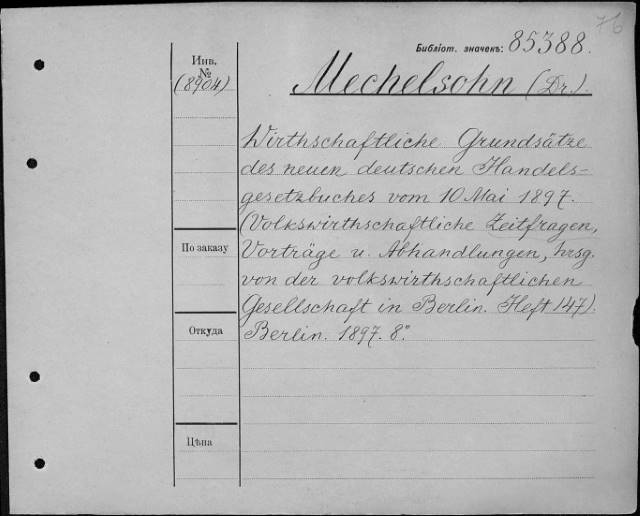 76
Библіот. значекъ: 85388.
Инв. №
(8904)
Mechelsohn (Dr.)
Wirthschaftliche Grundsätze
des neuen deutschen Handels=
gesetzbuches vom 10 Mai 1897.
(Volkswirthschaftliche Zeitfragen,
По заказу
Vorträge u. Abhandlungen, hrsg.
von der volkswirthschaftlichen
Gesellschaft in Berlin. Heft 147).
Откуда
Berlin. 1897. 8°.
Цѣна